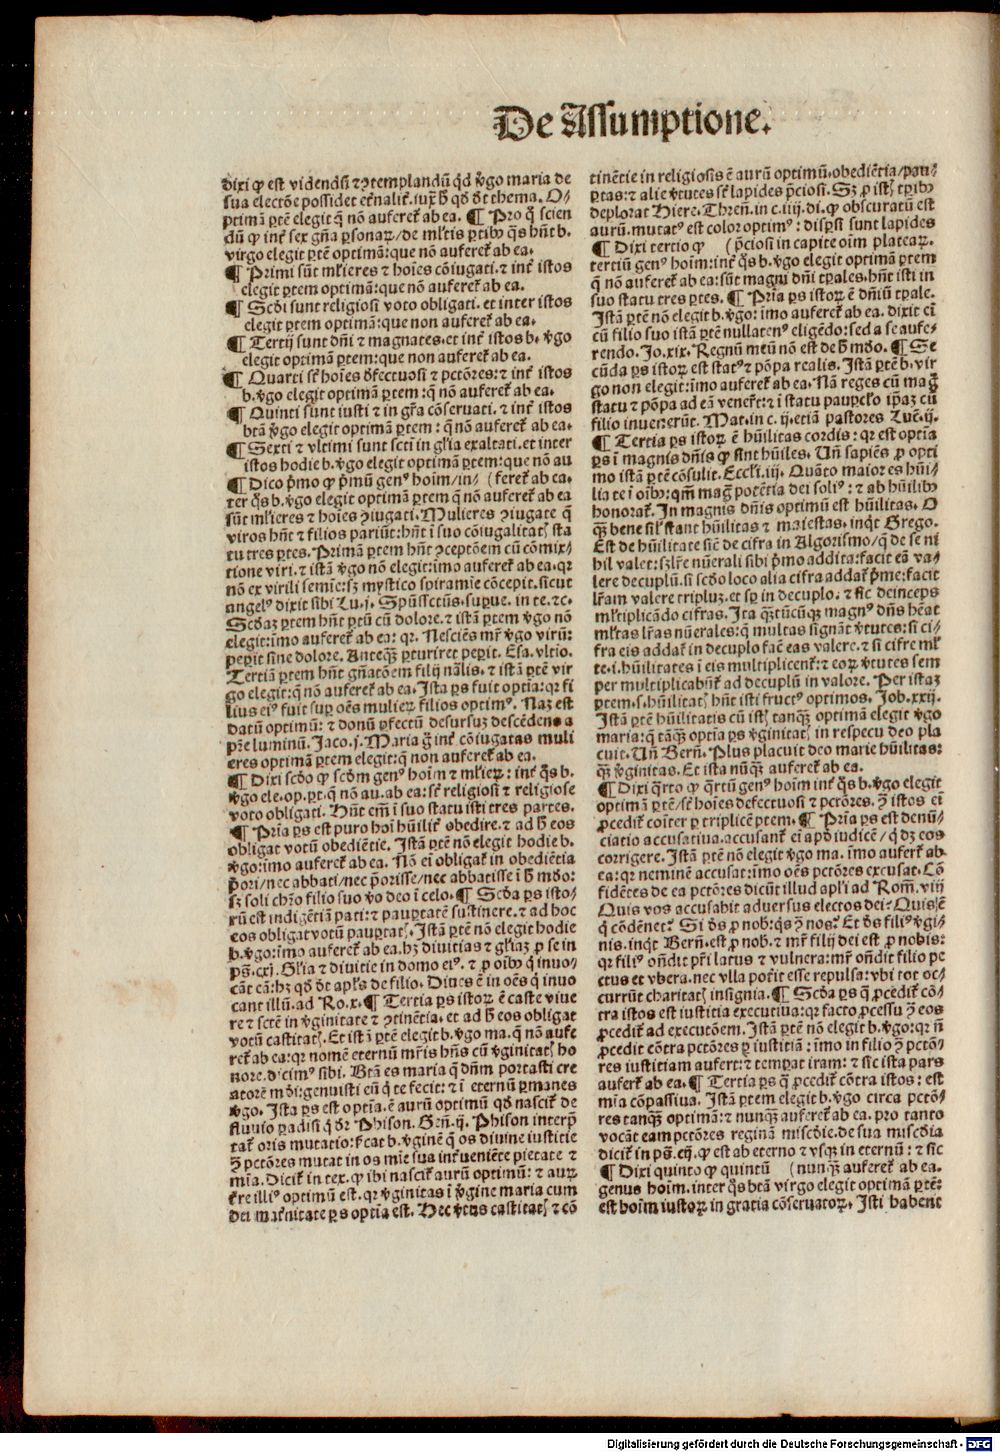 De Assumptione.
dixi ꝙ est videndū ⁊ ꝯtemplandū qd̄ v̄go maria de
sua electōe possidet et̓nalit̓. iux̄ h̄ qd̄ dr̄t thema. O-
ptimā ꝑtē elegit q̄ nō auferet̓ ab ea. ¶ Pro q̄ scien
dū ꝙ int̓ sex gn̄a ꝑsonaꝝ/ de ml̓tis ꝑtibꝰ q̄s hn̄t b.
virgo elegit ꝑtē optimā: que nō auferet̓ ab ea.
¶ Primi sūt ml̓ieres ⁊ hoīes cōiugati. ⁊ int̓ istos
elegit ꝑtem optimā: que nō auferet̓ ab ea.
¶ Scd̓i sunt religiosi voto obligati. et inter istos
elegit ꝑtem optimā: que non auferet̓ ab ea.
¶ Tertij sunt dn̄i ⁊ magnates. et int̓ istos b. v̄go
elegit optimā ꝑtem: que non auferet̓ ab ea.
¶ Quarti sc̓ hoīes defectuosi ⁊ pctōres: ⁊ int̓ istos
b. v̄go elegit optimā ꝑtem: q̄ nō auferet̓ ab ea.
¶ Quinti sunt iusti ⁊ in gr̄a cōseruati. ⁊ int̓ istos
bt̄ā v̄go elegit optimā ꝑtem: q̄ nō auferet̓ ab ea.
¶ Sexti ⁊ vltimi sunt scti in gl̓ia exaltati. et inter
istos hodie b. v̄go elegit optimā ꝑtem: que nō au
¶ Dico p̄mo ꝙ p̄mū genꝰ hoim/ in/ (feret̓ ab ea.
ter q̄s b. v̄go elegit optimā ꝑtem q̄ nō auferet̓ ab ea
sūt ml̓ieres ⁊ hoīes ꝯiugati. Mulieres ꝯiugate q̄
viros hn̄t ⁊ filios pariūt: hn̄t ī suo cōiugalitatꝭ sta
tu tres ꝑtes. Primā ꝑtem hn̄t ꝯceptōem cū cōmix/
tione viri. ⁊ istā v̄go nō elegit: īmo auferet̓ ab ea. qꝛ
nō ex virili semīe: sꝫ mystico spiramīe cōcepit. sicut
angelꝰ dixit sibi Lu. j. Spūssctūs. supue. in te. ⁊c.
Scd̓aꝫ ꝑtem hn̄t ꝑtū cū dolore. ⁊ istā ꝑtem v̄go nō
elegit: īmo auferet̓ ab ea: qꝛ. Nesciēs mr̄ v̄go virū:
peperit sine dolore. Anteqꝫ ꝑturiret peꝑit. Esa. vltio.
Tertiā ꝑtem hn̄t gn̄atōem filij nālis. ⁊ istā ꝑtē vir
go elegit: q̄ nō auferet̓ ab ea. Ista ꝑs fuit optīa: qꝛ fi
liꝰ eiꝰ fuit suꝑ oēs mulieꝝ filios optimꝰ. Naꝫ est
datū optimū: ⁊ donū ꝑfectū desursuꝫ descēdens a
pr̄e luminū. Jaco. j. Maria ḡ int̓ cōiugatas muli
eres optimā ꝑtem elegit: q̄ non auferet̓ ab ea.
¶ Dixi scd̓o ꝙ scd̓m genꝰ hoīm ⁊ ml̓ieꝝ: int̓ q̄s b.
v̄go ele. op. ꝑt. q̄ nō au. ab ea: sc̓ religiosi ⁊ religiose
voto obligati. Hn̄t em̄ ī suo statu isti tres partes.
¶ Pr̄ia ꝑs est puro hoī hūilit̓ obedire. ⁊ ad h̄ eos
obligat votū obediētie. Istā ꝑtē nō elegit hodie b.
v̄go: īmo auferet̓ ab ea. Nō ei obligat̓ in obediētia
p̄ori/ nec abbati/ nec p̄orisse/ nec abbatisse ī h̄ mūdo:
sꝫ soli chr̄o filio suo v̄o deo ī celo. ¶ Scd̓a ꝑs isto-
ꝝ est indigētiā pati: ⁊ pauꝑtatē sustinere. ⁊ ad hoc
eos obligat votū pauꝑtatꝭ. Istā ꝑtē nō elegit hodie
b. v̄go: īmo auferet̓ ab ea. hꝫ diuitias ⁊ gl̓iaꝫ ꝑ se in
ps̄. cxj. Gl̓ia ⁊ diuitie in domo eiꝰ. ⁊ ꝓ oībꝰ q̄ inuo-
cāt eā: hꝫ qd̄ dr̄ apl̓s de filio. Diues ē in oēs q̄ inuo
cant illū. ad Ro. x. ¶ Tertia ꝑs istoꝝ ē caste viue
re ⁊ sctē in v̄ginitate ⁊ ꝯtinētia. et ad h̄ eos obligat
votū castitatꝭ. Et istā ꝑtē elegit b. v̄go ma. q̄ nō aufe
ret̓ ab ea: qꝛ nomē eternū mr̄is hn̄s cū v̄ginitatꝭ ho
nore. dicimꝰ sibi. Bt̄ā es maria q̄ dn̄m portasti cre
atorē mūdi: genuisti eū q̄ te fecit: ⁊ ī eternū ꝑmanes
v̄go. Ista ꝑs est optīa. ē aurū optimū qd̄ nascit̓ de
fluuio paradisi q̄ dr̄ Phison. Gen̄. ij. Phison interp̄
tat̓ oris mutatio: sc̓at b. v̄ginē q̄ os diuine iustitie
ꝯ pctōres mutat in os mīe sua int̓ueniēte pietate ⁊
mīa. Dicit̓ in tex. ꝙ ibi nascit̓ aurū optimū: ⁊ auꝝ
t̓re illiꝰ optimū est. qꝛ v̄ginitas ī v̄gine maria cum
dei mat̓nitate ꝑs optīa est. Hec v̓tus castitatꝭ ⁊ cō
tinētie in religiosis ē aurū optimū. obediētia/ pau-
ꝑtas: ⁊ alie v̓tutes sc̓ lapides p̄ciosi. Sꝫ ꝓ istꝭ tꝑibꝰ
deplorat Hiere. Thren̄. in c. iiij. di. ꝙ obscuratū est
aurū. mutatꝰ est color optimꝰ: disꝑsi sunt lapides
¶ Dixi tertio ꝙ (p̄ciosi in capite oīm plateaꝝ.
tertiū genꝰ hoīm: int̓ q̄s b. v̄go elegit optimā ꝑtem
q̄ nō auferet̓ ab ea: sūt magni dn̄i tꝑales. hn̄t isti in
suo statu tres ꝑtes. ¶ Pr̄ia ꝑs istoꝝ ē dn̄iū tꝑale.
Istā ꝑtē nō elegit b. v̄go: īmo auferet̓ ab ea. dixit ei
cū filio suo istā ꝑtē nullatenꝰ eligēdo: sed a se aufe-
rendo. Jo. xix. Regnū meū nō est de h̄ mūdo. ¶ Se
cūda ꝑs istoꝝ est statꝰ ⁊ pōpa realis. Istā ꝑtē b. vir
go non elegit: īmo auferet̓ ab ea. Nā reges cū mag̓
statu ⁊ pōpa ad eā venert̄: ⁊ ī statu pauꝑculo ip̄aꝫ cū
filio inuenerūt. Mat. in c. ij. etiā pastores Luc̄. ij.
¶ Tertia ꝑs istoꝝ ē hūilitas cordis: qꝛ est optīa
ꝑs ī magnis dn̄is ꝙ sint hūiles. Un̄ sapiēs ꝓ opti
mo istā ꝑtē cōsulit. Eccl̓i. iij. Quāto maior es hūi-
lia te ī oībꝰ: qm̄ mag̓ potētia dei soliꝰ: ⁊ ab hūilibꝰ
honorat̓. In magnis dn̄is optimū est hūilitas. O
qꝫ bene sil̓ stant hūilitas ⁊ maiestas. inqt Grego.
Est de hūilitate sic̄ de cifra in Algorismo/ q̄ de se ni
hil valet: sꝫ lr̄e nūerali sibi p̄mo addita: facit eā va-
lere decuplū. si scd̓o loco alia cifra addat̓ p̄me: facit
lr̄am valere tripluꝫ. et sꝑ in decuplo. ⁊ sic deinceps
ml̓tiplicādo cifras. Ita qꝫtūcūqꝫ magnꝰ dn̄s hēat
ml̓tas lr̄as nūerales: q̄ multas signāt v̓tutes: si ci-
fra eis addat̓ in decuplo fac̄ eas valere. ⁊ si cifre ml̓
te. i. hūilitates ī eis multiplicent̓: ⁊ eoꝝ v̓tutes sem
per multiplicabūt̓ ad decuplū in valore. Per istaꝫ
ꝑtem. s. hūilitatꝭ hn̄t isti fructꝰ optimos. Job. xxij.
Istā ꝑtē hūilitatis cū istꝭ tanqꝫ optimā elegit v̄go
maria: q̄ tāqꝫ optīa ꝑs v̄ginitatꝭ in respectu deo pla
cuit. Un̄ Bern̄. Plus placuit deo marie hūilitas:
qꝫ v̄ginitas. Et ista nūqꝫ auferet̓ ab ea.
¶ Dixi q̄rto ꝙ q̄rtū genꝰ hoīm int̓ q̄s b. v̄go elegit
optimā ꝑtē/ sc̓ hoīes defectuosi ⁊ pctōres. ꝯ istos ei
ꝓcedit̓ coīter ꝑ triplicē ꝑtem. ¶ Pr̄ia ꝑs est denū-
ciatio accusatiua. accusant̓ ei apd̓ iudicē/ q̄ dꝫ eos
corrigere. Istā ꝑtē nō elegit v̄go ma. īmo aufert̓ ab
ea: qꝛ neminē accusat: īmo oēs pctōres excusat. Cō
fidētes de ea pctōres dicūt illud apl̓i ad Rom̄. viij
Quis vos accusabit aduersus electos dei? Quis ē
q̄ cōdēnet? Si dꝰs ꝓ nob̓: q̄s ꝯ nos? Et dꝰs filiꝰ v̄gi-
nis. inqt Bern̄. est ꝓ nob̓. ⁊ mr̄ filij dei est ꝓ nobis:
qꝛ filiꝰ oñdit pr̄i latus ⁊ vulnera: mr̄ oñdit filio pe
ctus et vbera. nec vlla pot̓it esse repulsa: vbi tot oc-
currūt charitatꝭ insignia. ¶ Scd̓a ꝑs q̄ ꝓcedit̓ cō-
tra istos est iustitia executiua: qꝛ facto ꝓcessu ꝯ eos
ꝓcedit̓ ad executōem. Istā ꝑtē nō elegit b. v̄go: qꝛ n̄
ꝓcedit cōtra pctōres ꝑ iustitiā: īmo in filio ꝯ pctō-
res iustitiam aufert: ⁊ temꝑat iram: ⁊ sic ista pars
aufert̓ ab ea. ¶ Tertia ꝑs q̄ ꝓcedit̓ cōtra istos: est
mīa cōpassiua. Istā ꝑtem elegit b. v̄go circa pctō-
res tanqꝫ optimā: ⁊ nunqꝫ auferet̓ ab ea. pro tanto
vocāt eam pctōres reginā mīsc̄die. de sua mīsc̄dia
dicit̓ in ps̄. cij. ꝙ est ab eterno ⁊ vsqꝫ in eternū: ⁊ sic
¶ Dixi quinto ꝙ quintū (nunqꝫ auferet̓ ab ea.
genus hoīm. inter q̄s bt̄ā virgo elegit optimā ꝑtē:
est hoīm iustoꝝ in gratia cōseruatoꝝ. Isti habent
Digitalisierung gefördert durch die Deutsche Forschungsgemeinschaft - DFG